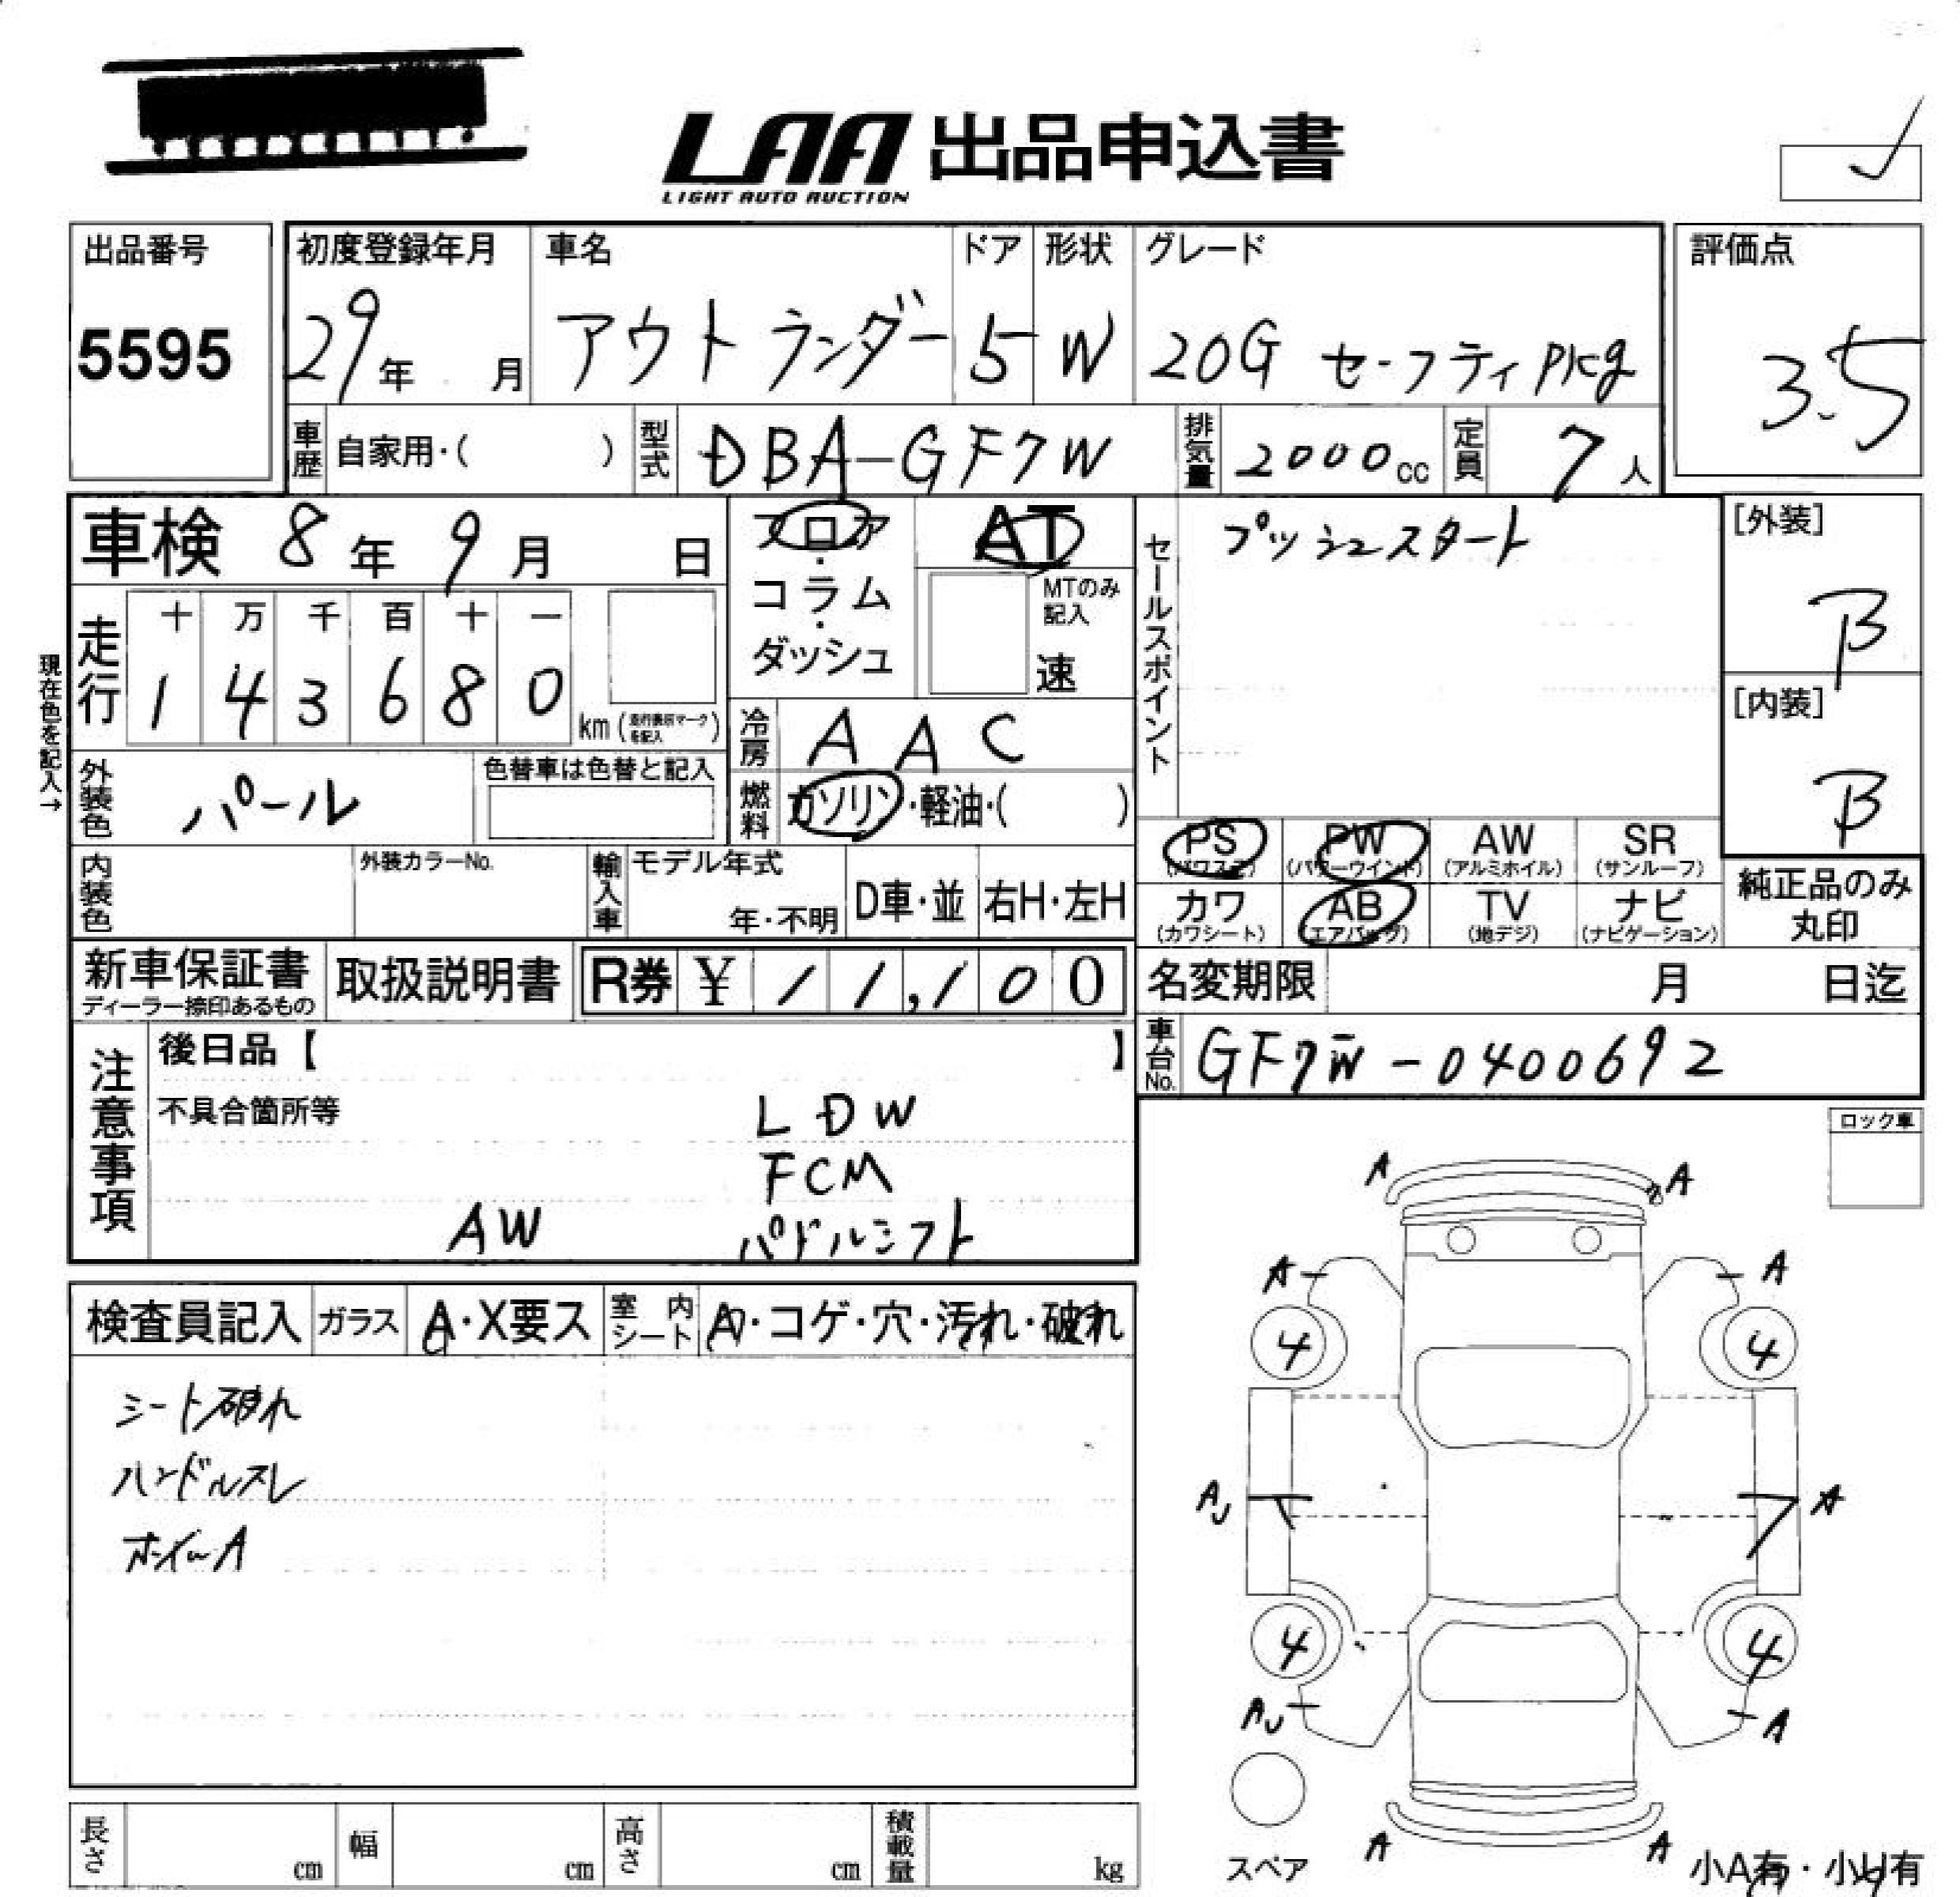 LAA 出品申込書
LIGHT AUTO AUCTION
出品番号
5595
初度登録年月
29年 月
車名
アウトランダー
ドア
5
形状
W
グレード
20G セーフティpkg
評価点
3.5
車歴 自家用・( )
型式 DBA-GF7W
排気量 2000cc
定員 7人
車検 8年 9月 日
フロア・コラム・ダッシュ
AT
MTのみ記入
速
セールスポイント
プッシュスタート
[外装]
B
[内装]
B
現在色を記入→
走行
十 万 千 百 十 一
1 4 3 6 8 0 km
冷房 AAC
燃料 ガソリン・軽油・( )
外装色 パール
色替車は色替と記入
PS (パワステ) PW (パワーウインド) AW (アルミホイル) SR (サンルーフ)
カワ (カワシート) AB (エアバッグ) TV (地デジ) ナビ (ナビゲーション)
純正品のみ丸印
内装色
外装カラーNo.
輸入車 モデル年式
年・不明 D車・並 右H・左H
新車保証書
ディーラー捺印あるもの
取扱説明書
R券 ¥11,100
名変期限 月 日迄
車台No. GF7W-0400692
注意事項
後日品【 】
不具合箇所等
LDW
FCM
AW パドルシフト
ロック車
検査員記入 ガラス A・X要ス 室内シート A・コゲ・穴・汚れ・破れ
シート破れ
ハンドルスレ
ホイールA
A A
A A
4 4
AU A
4 4
AU A
スペア
A A
小A有・小U有
長さ cm 幅 cm 高さ cm 積載量 kg